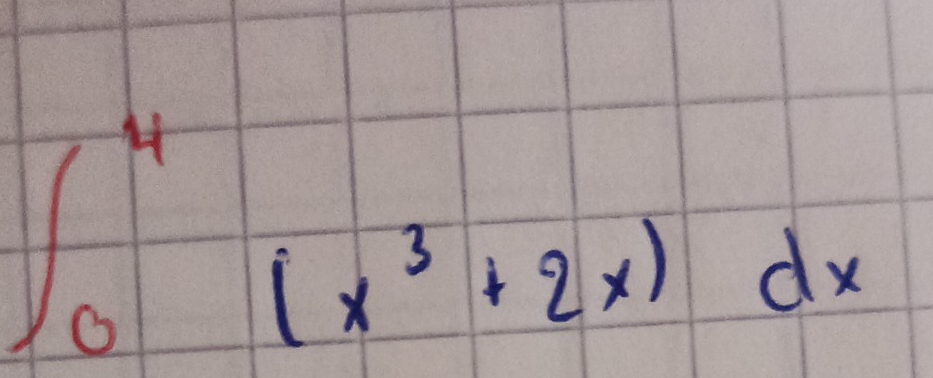 ∫₀⁴ (x³ + 2x) dx